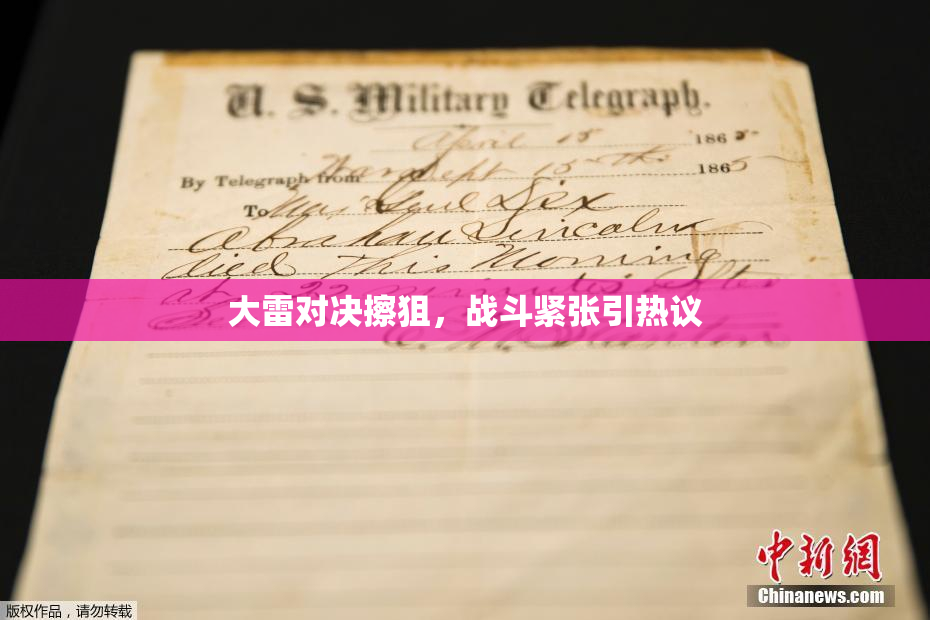 U. S. Military Telegraph.
April 15 1865
By Telegraph from War Dept 15th 1865
To Maj Genl Dix
Abraham Lincoln
died This Morning
at 22 minutes after
大雷对决擦狙，战斗紧张引热议
中新网
Chinanews.com
版权作品，请勿转载